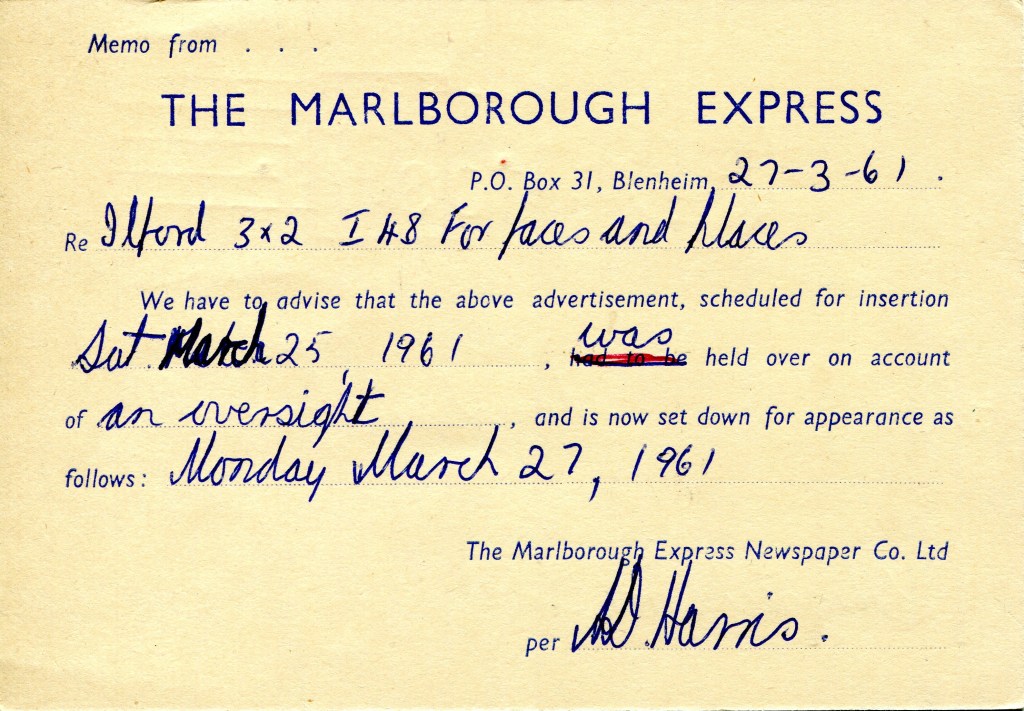 Memo from . . .
THE MARLBOROUGH EXPRESS
P.O. Box 31, Blenheim, 27-3-61.
Re Ilford 3x2 I 48 For faces and places
We have to advise that the above advertisement, scheduled for insertion
Sat. March 25, 1961, was had to be held over on account
of an oversight, and is now set down for appearance as
follows: Monday March 27, 1961
The Marlborough Express Newspaper Co. Ltd
per Harris.